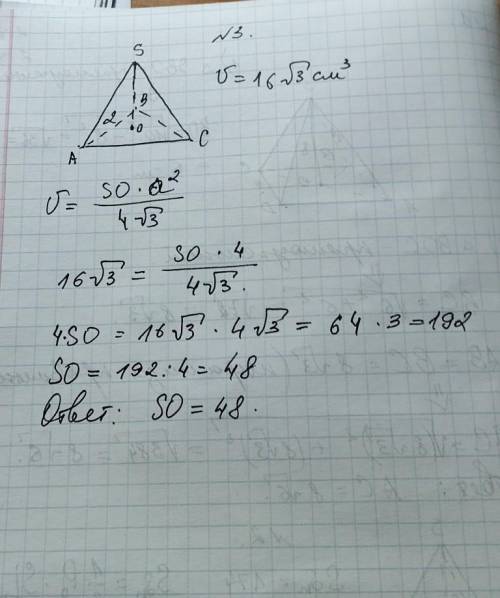 №3.
S
V = 16√3 см³
2
B
O
A
C
V = SO · a² / 4√3
16√3 = SO · 4 / 4√3.
4·SO = 16√3 · 4√3 = 64 · 3 = 192
SO = 192 : 4 = 48
Ответ: SO = 48.